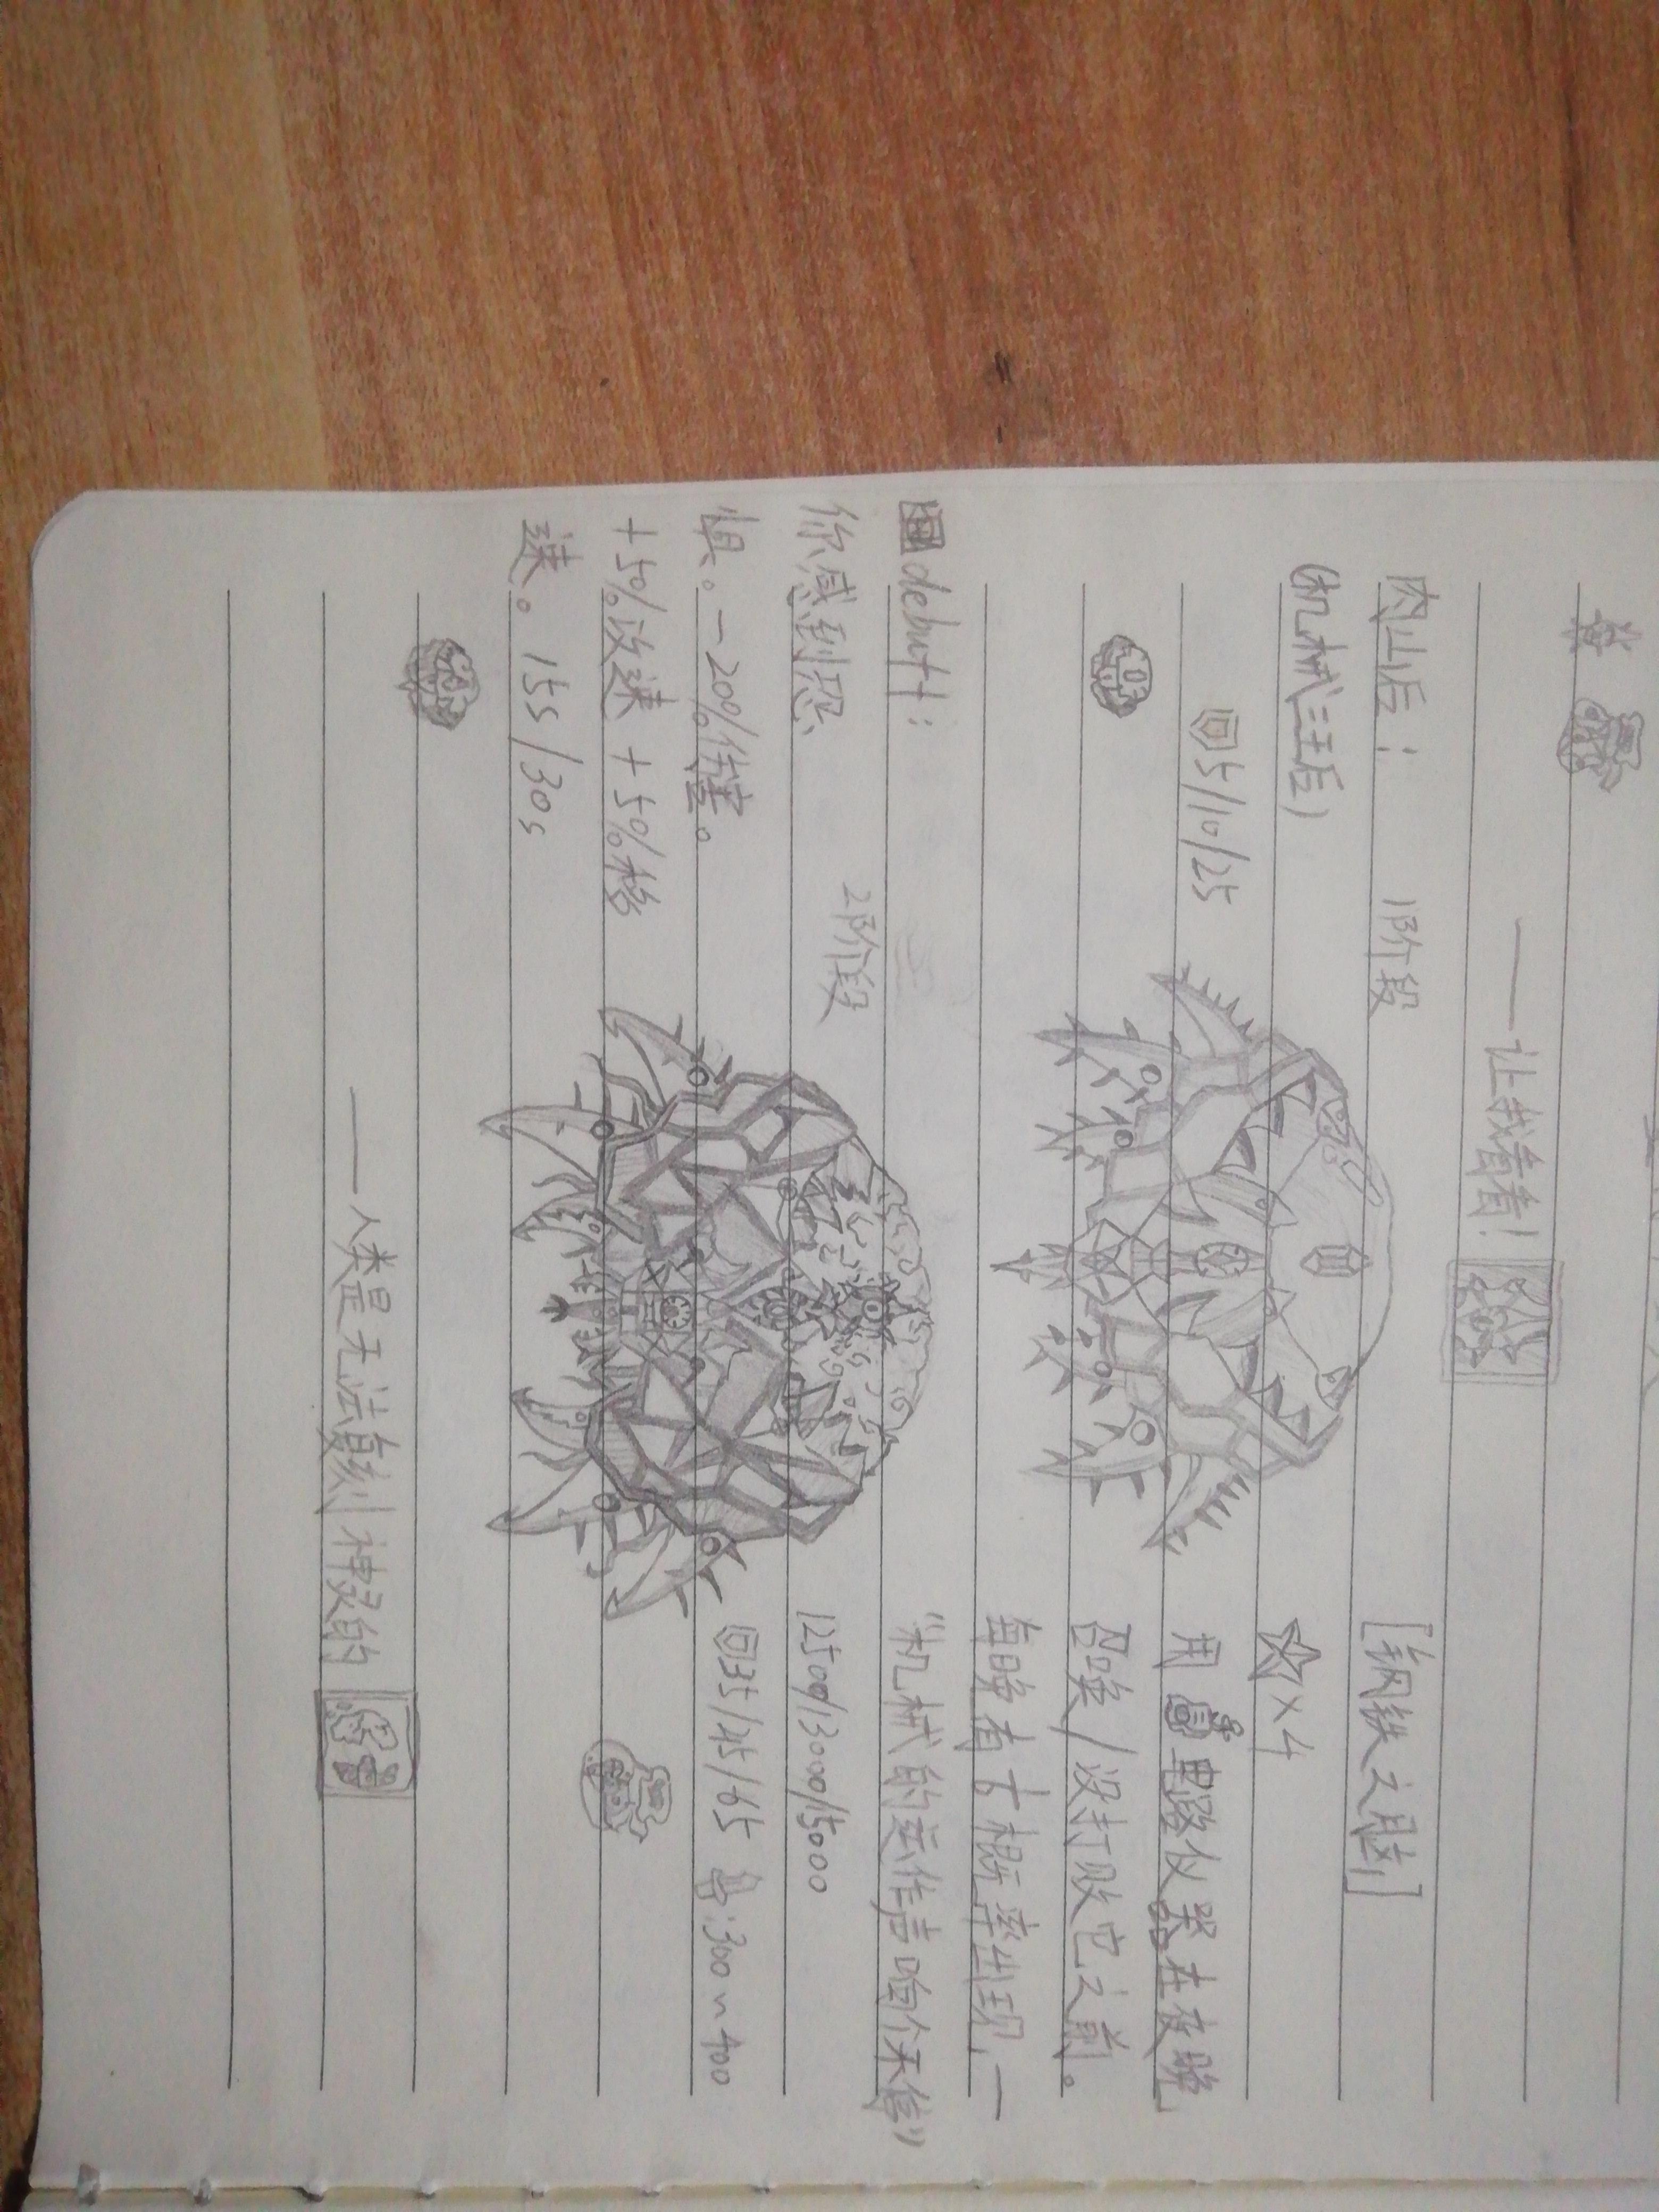 ——让我看看!
肉山后:
1阶段
[钢铁之脑]
(机械三王后)
×4
5/10/25
用 电路仪器在夜晚
召唤/没打败它之前。
每晚有 概率出现,一
debuff:
"机械的运作声响个不停"
你感到恐
2阶段
12500/13000/15000
惧。-20%伤害。
35/45/65 :300~400
+5%攻速 +5%移
速。15s/30s
——人类是无法复刻神灵的